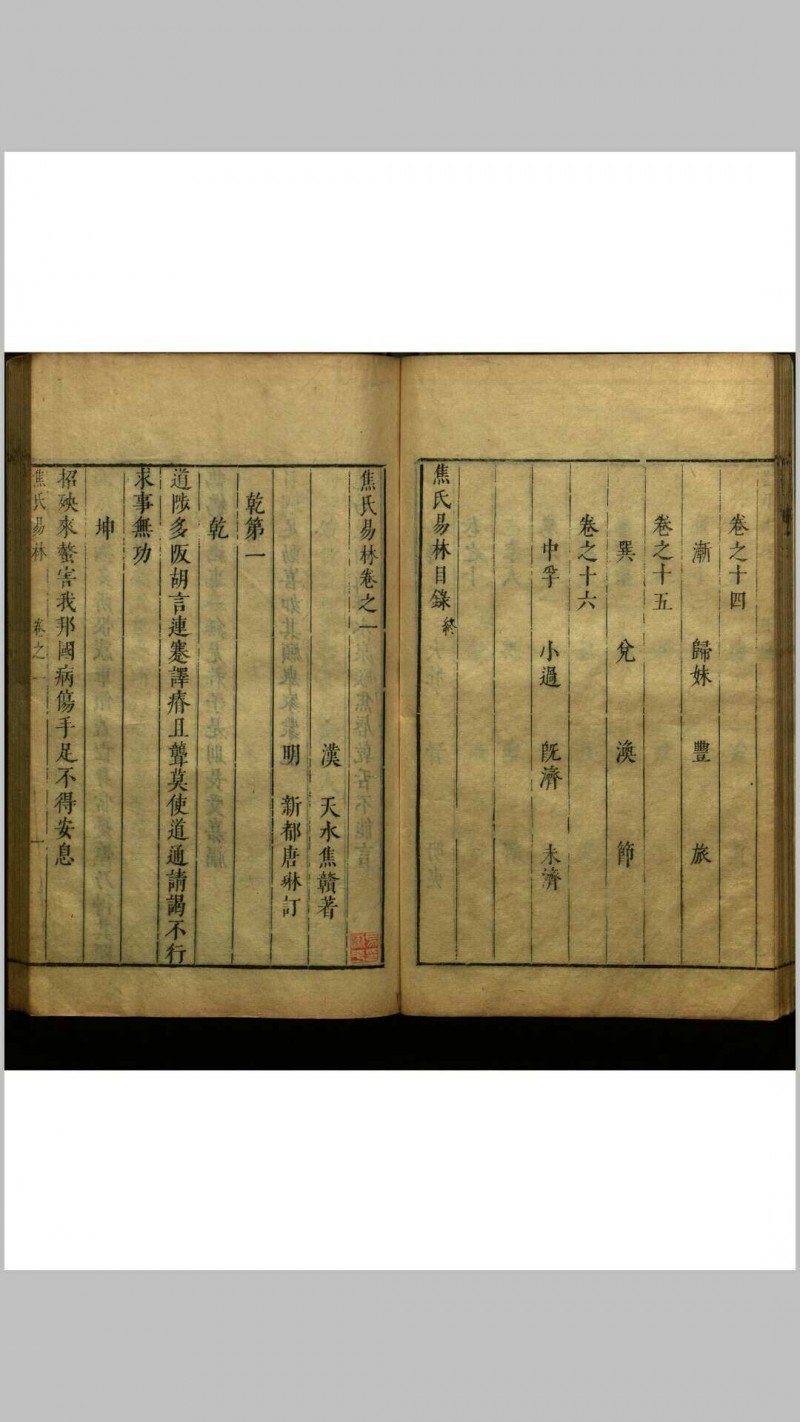 卷之十四
漸 歸妹 豐 旅
卷之十五
巽 兌 渙 節
卷之十六
中孚 小過 既濟 未濟
焦氏易林目錄 終
焦氏易林卷之一
漢 天水焦贛著
明 新都唐琳訂
乾第一
乾
道陟多阪胡言連蹇譯瘖且聾莫使道通請謁不行
求事無功
坤
招殃來螫害我邦國病傷手足不得安息
焦氏易林 卷之一 一